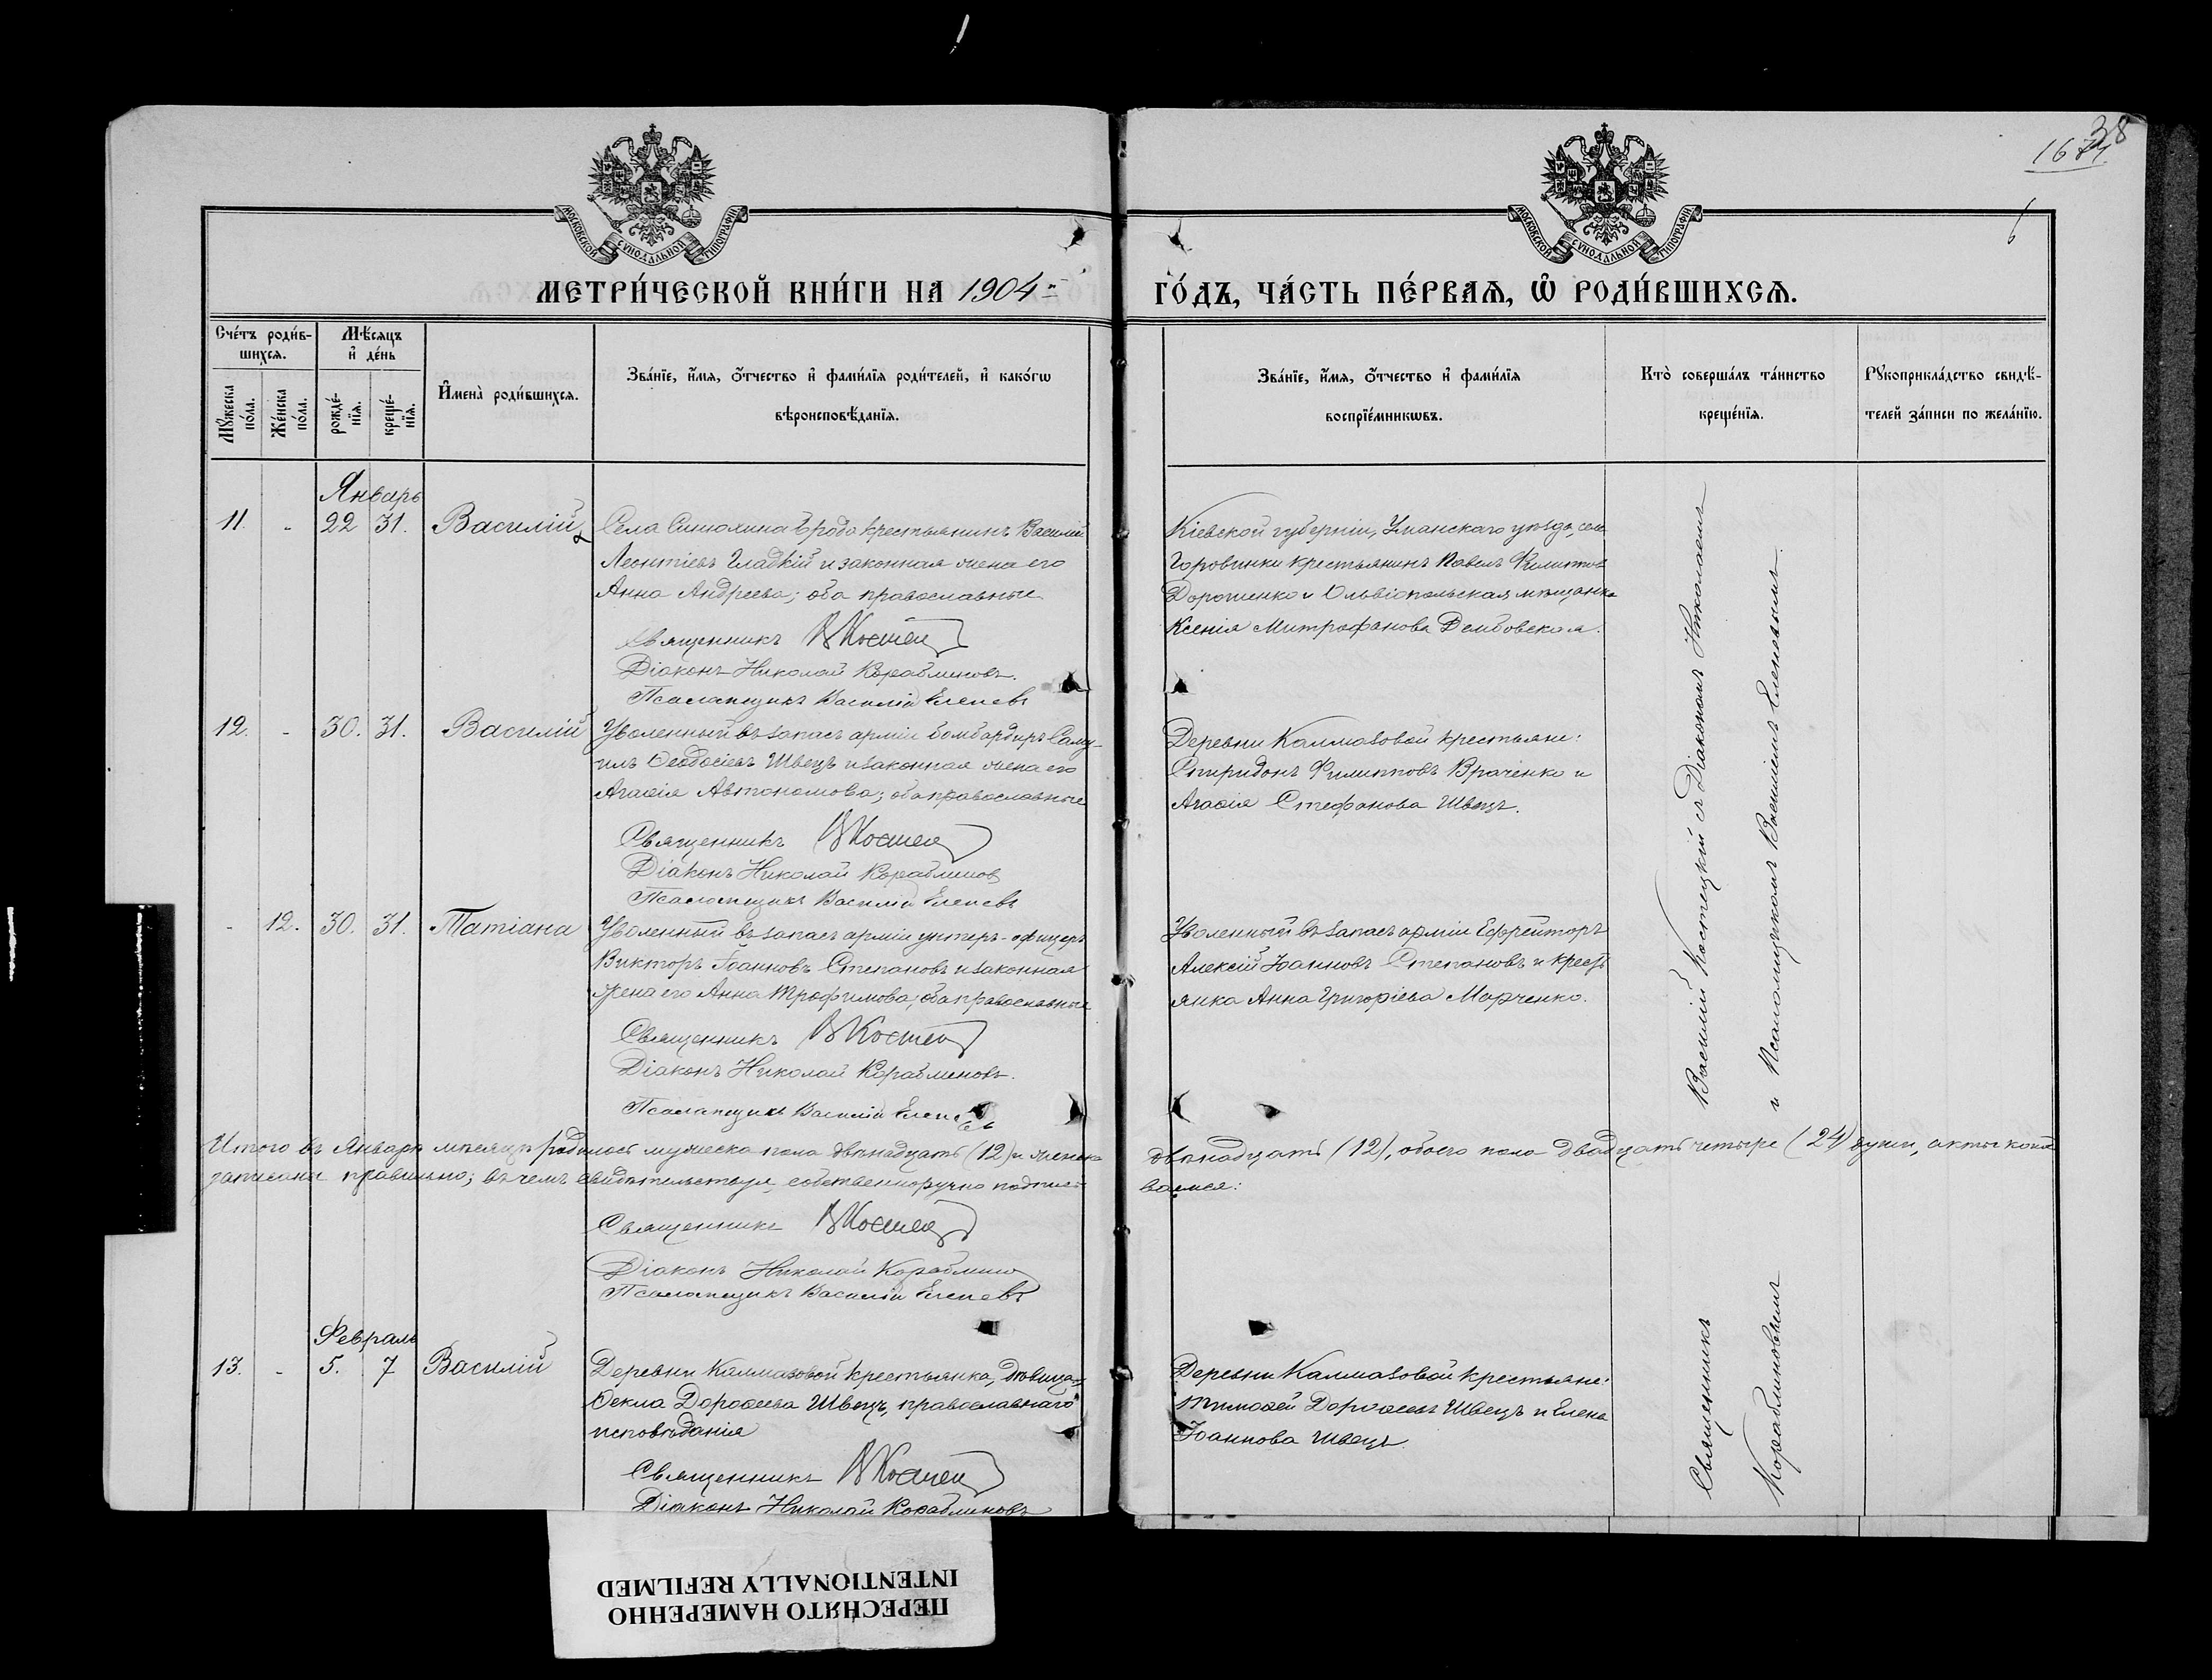 1674
38
6
МОСКОВСКОЙ СѴНОДАЛЬНОЙ ТИПОГРАФІИ
МОСКОВСКОЙ СѴНОДАЛЬНОЙ ТИПОГРАФІИ
МЕТРИ́ЧЕСКОЙ КНИ́ГИ НА 1904-й
ГО́ДЪ, ЧА́СТЬ ПЕ́РВАѦ, Ѡ РОДИ́ВШИХСѦ.
Сче́тъ роди́в-
шихсѧ.
Мꙋжеска по́ла.
Же́нска по́ла.
Мѣ́сѧцъ
и҆ де́нь
рожде́-
нїѧ.
креще́-
нїѧ.
И҆мена̀ роди́вшихсѧ.
Зва́нїе, и҆́мѧ, ѻ҆́тчество и҆ фами́лїѧ роди́телей, и҆ како́гѡ
вѣроисповѣ́данїѧ.
Зва́нїе, и҆́мѧ, ѻ҆́тчество и҆ фами́лїѧ
воспрїе́мникѡвъ.
Кто̀ соверша́лъ та́инство
креще́нїѧ.
Рꙋкоприкла́дство свидѣ́-
телей за́писи по жела́нїю.
Январь
11. - 22 31. Василій
Села Синюхина Брода крестьянинъ Василій
Леонтіевъ Гладкій и законная жена его
Анна Андреева; оба православные
Священникъ В Костец
Діаконъ Николай Кораблиновъ.
Псаломщикъ Василій Еленевъ
Кіевской губерніи, Уманскаго уѣзда, села
крестьянинъ Павелъ Филиппов
Дорошенко и Ольвіопольская мѣщанка
Ксенія Митрофанова Дембовская.
12. - 30. 31. Василій
Уволенный въ запасъ арміи бомбардиръ Саму-
илъ Ѳеодосіевъ Швецъ и законная жена его
Агаѳія Автономова; оба православные
Священникъ В Костец
Діаконъ Николай Кораблинов
Псаломщикъ Василій Еленевъ
Деревни Калмазовой крестьяне:
Спиридонъ Филипповъ Враченко и
Агаѳія Стефанова Швецъ.
- 12. 30. 31. Татіана
Уволенный въ запасъ арміи унтеръ-офицеръ
Викторъ Іоанновъ Степановъ и законная
жена его Анна Трофимова; оба православные
Священникъ В Костец
Діаконъ Николай Кораблиновъ.
Псаломщикъ Василій Еленевъ
Уволенный въ запасъ арміи Ефрейторъ
Алексій Іоанновъ Степановъ и крестъ
янка Анна Григоріева Марченко.
Итого въ Январѣ мѣсяцѣ родилось мужеска пола двѣнадцать (12) и женска
двѣнадцать (12), обоего пола двадцать четыре (24) души, акты коихъ
записаны правильно; въ чемъ свидѣтельствуя, собственноручно подписы-
ваемся:
Священникъ В Костец
Діаконъ Николай Кораблинов
Псаломщикъ Василій Еленевъ
Февраль
13. - 5. 7 Василій
Деревни Калмазовой крестьянка, дѣвица
Ѳекла Дороѳеева Швецъ, православнаго
исповѣданія
Священникъ В Костец
Діаконъ Николай Кораблиновъ
Деревни Калмазовой крестьяне:
Тимоѳей Дороѳеевъ Швецъ и Елена
Іоаннова Швецъ.
Священникъ Василій Костецкій съ Діакономъ Николаемъ
Кораблиновымъ и Псаломщикомъ Василіемъ Еленевымъ.
ПЕРЕСНЯТО НАМЕРЕННО
INTENTIONALLY REFILMED